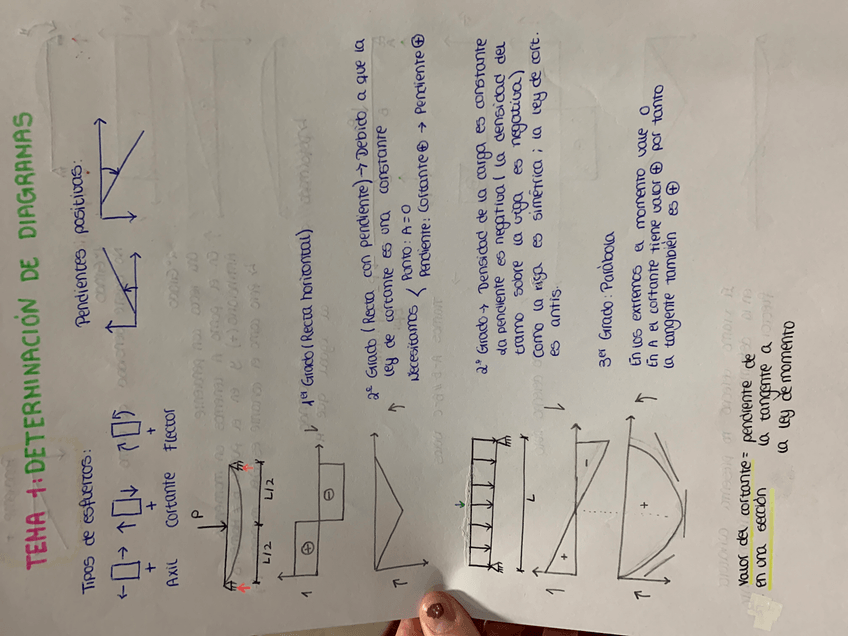 TEMA 1: DETERMINACIÓN DE DIAGRAMAS
Tipos de esfuerzos:
Pendientes positivas:
+ + +
Axil Cortante Flector
P
L/2 L/2
+
-
1er Grado (Recta horizontal)
2º Grado (Recta con pendiente) → Debido a que la
ley de cortante es una constante
Necesitamos < Punto: A=0
Pendiente: Cortante ⊕ → Pendiente ⊕
L
+
-
2º Grado → Densidad de la carga es constante
la pendiente es negativa (la densidad del
tramo sobre la viga es negativa)
Como la viga es simétrica; la ley de cort.
es antis.
+
3er Grado: Parábola
En los extremos a momento vale 0
En A el cortante tiene valor ⊕ por tanto
la tangente también es ⊕
Valor del cortante = pendiente de
en una sección la tangente a
la ley de momento